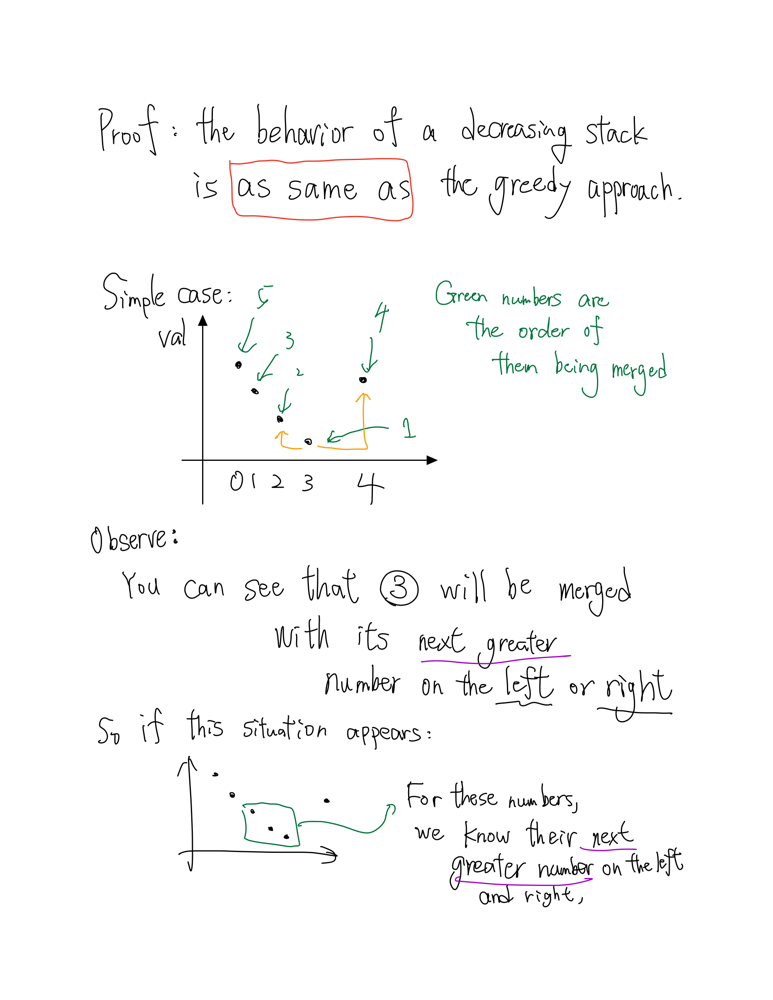 Proof: the behavior of a decreasing stack
is as same as the greedy approach.
Simple case:
5
4
3
2
1
Green numbers are
the order of
them being merged
val
0 1 2 3 4
Observe:
You can see that ③ will be merged
with its next greater
number on the left or right
So if this situation appears:
For these numbers,
we know their next
greater number on the left
and right,